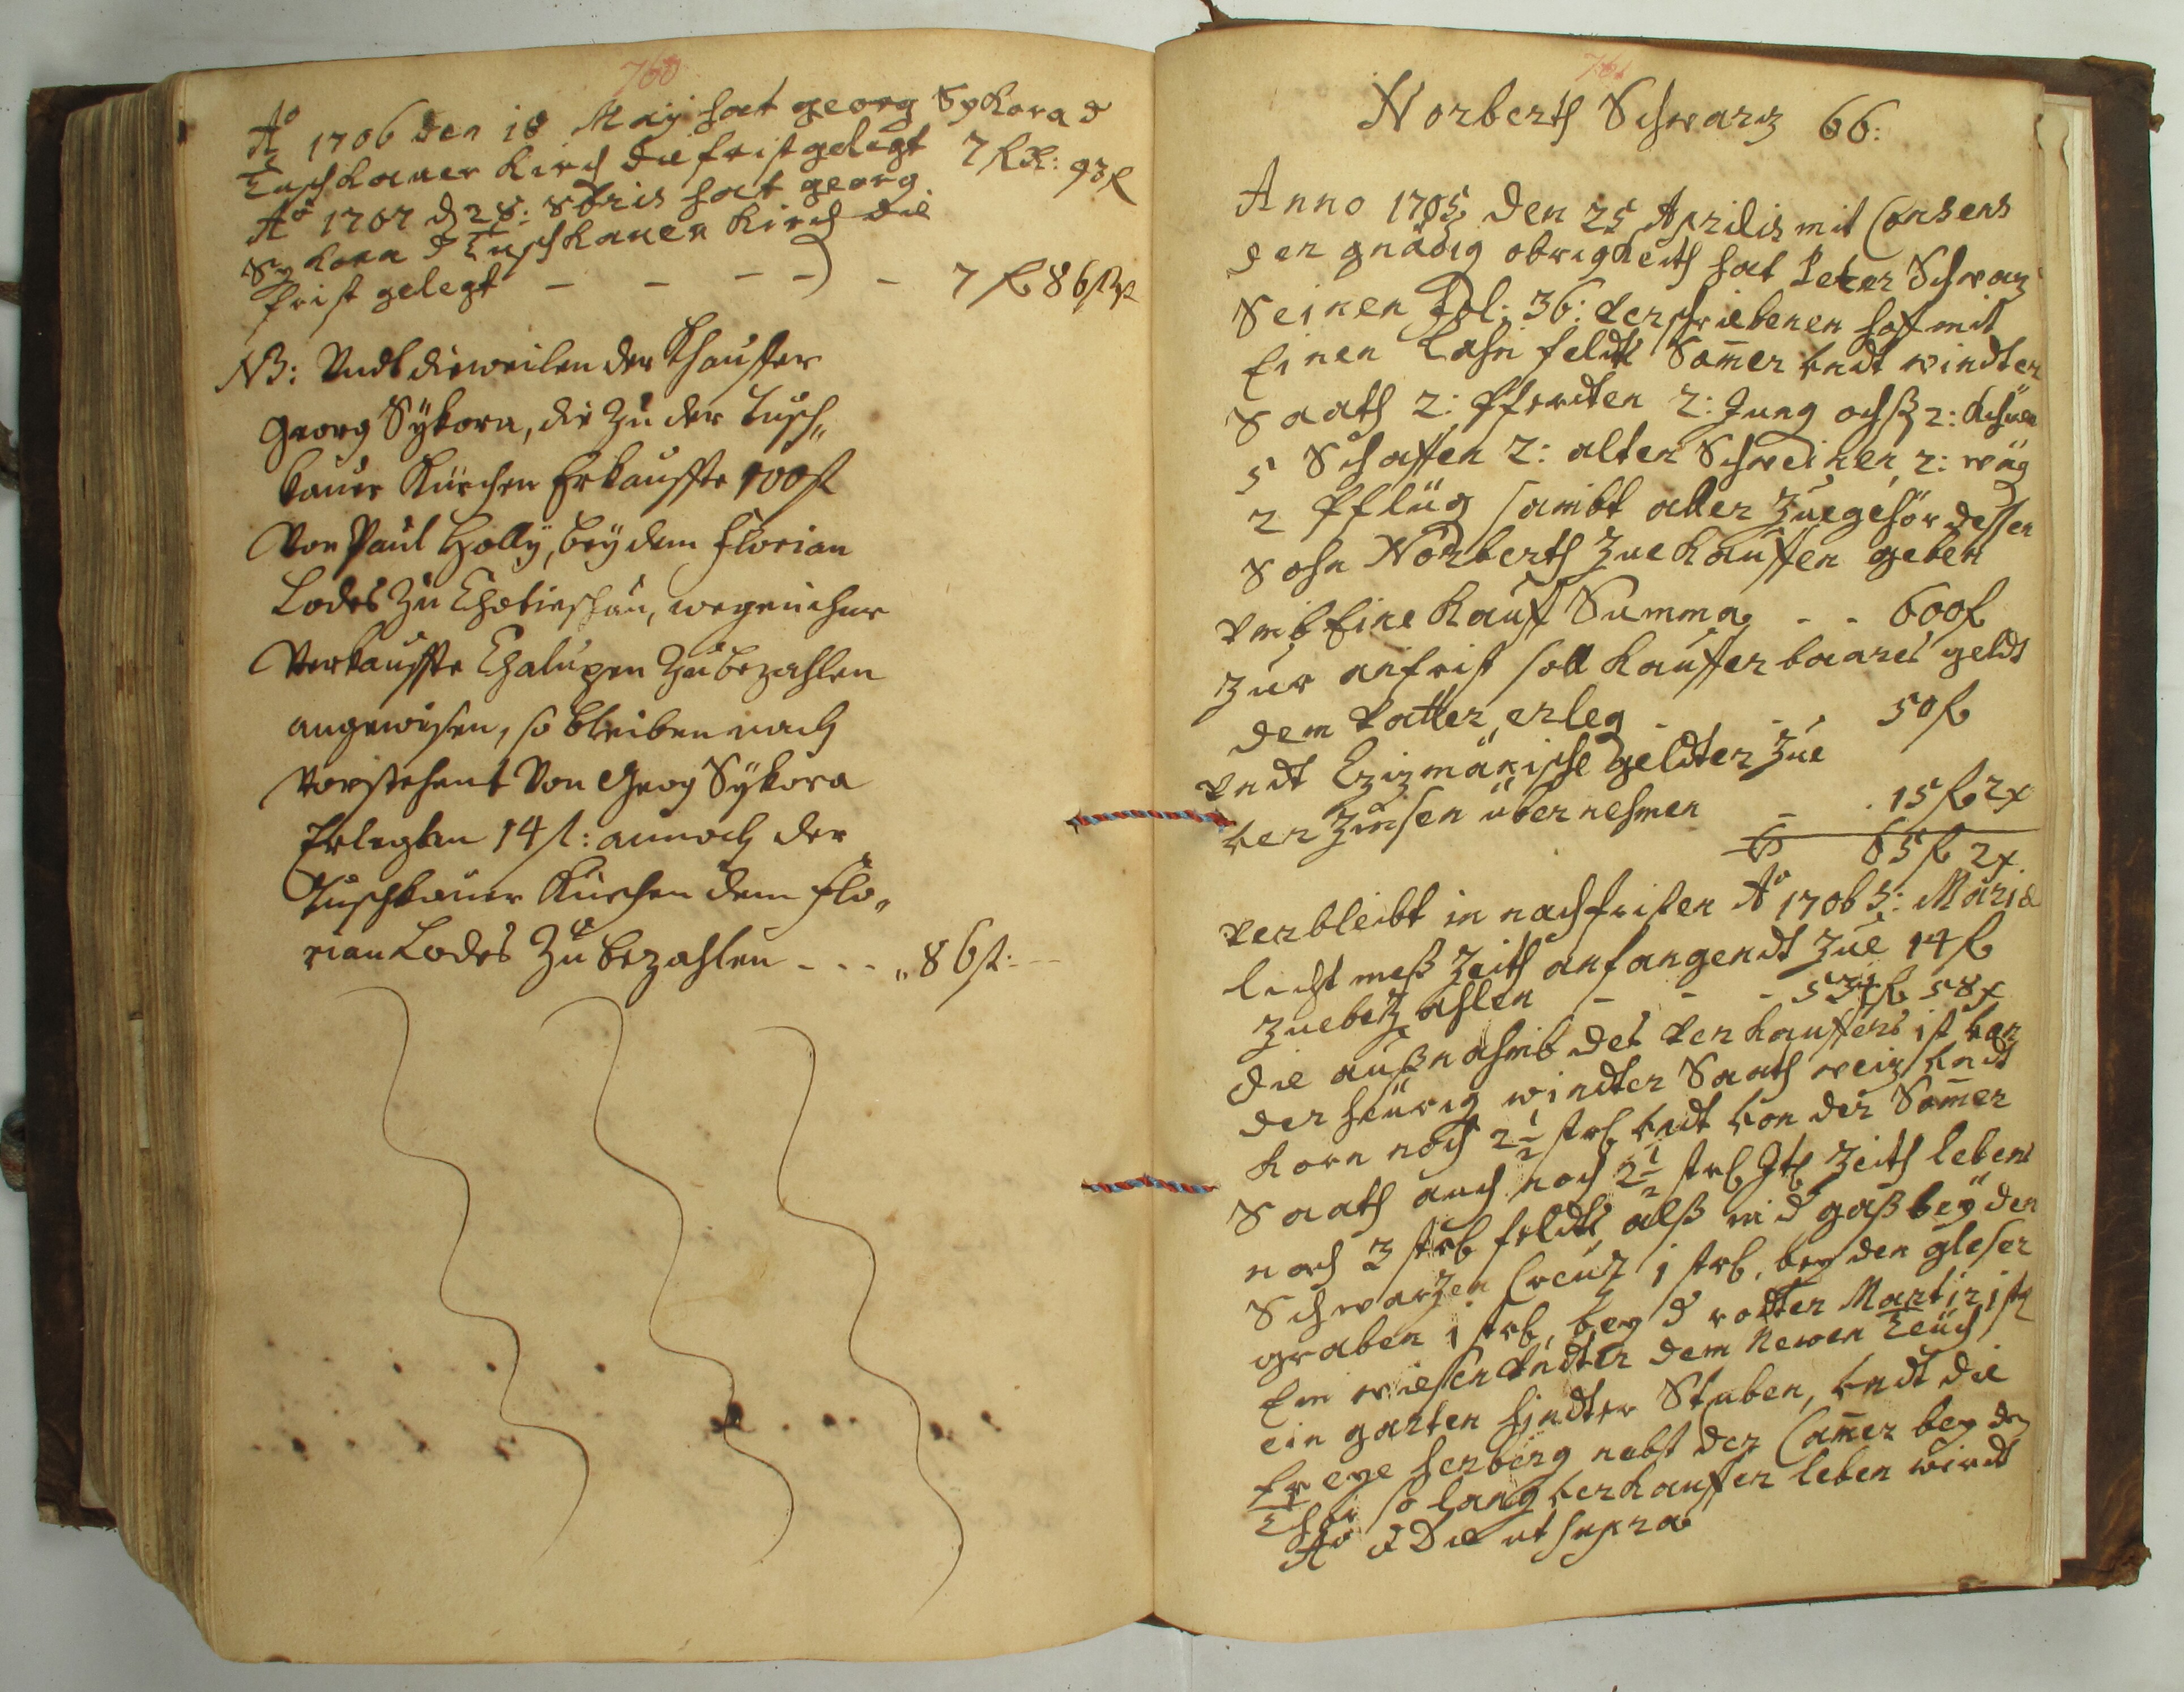 760
Aō 1706 den 18 Maÿ hat georg Sykora d
Tuschkauer Kirch die frist gelegt 7 fl R: 93 fl
Aō 1707 d 28: 8bris hat georg
Sykora d Tuschkauer Kirch die
frist gelegt - - - - - 7 fl 86 fl
NB: Undt dieweilen der Khauffer
Georg Sÿkora, die zu der Tusch„
kauer Kürchen Erkauffte 100 fl
Von Paul Holly, beÿ dem Florian
Lodes zu Chotieschau, wegen ihme
Verkauffte Chalupen zu bezahlen
angewisen, so bleiben nach
Vorstehent Von Georg Sÿkora
Erlegten 14 fl: annoch der
Tuschkauer Kürchen dem Flo„
rian Lodes Zu bezahlen - - - „86 fl: -
761
Norberth Schwarz 66:
Anno 1705 den 25 Aprilis mit Consens
der gnädig obrigkeith hat Peter Schwarz
Seinen Fol: 36: verschriebenen hoff mit
Einen Lahn feldt Som̄er vndt windter
Saath 2: Pferdten 2: Jung ochß 2: Kühen
5 Schaffen 2: alten Schweinen, 2: wäg
2 Pflüg sambt aller Zuegehör dessen
Sohn Norberth Zue kauffen geben
vmb Eine Kauff Summa - - 600 fl
Zur anfrist soll kauffer baares geldt
dem Vatter erleg - - - 50 fl
vndt geldter Zue
verZinsen übernehmen - - 15 fl 2 x
65 fl 2 x
verbleibt in nachfristen Aō 1706 Maria
liechtmeß Zeith anfangendt Zue 14 fl
Zuebezahlen - - - 534 fl 58 x
die außnahmb des verkauffers ist von
der heürig windter Saath weiz vndt
Korn noch 2½ strl vndt von der Som̄er
Saath auch noch 2½ strl Zeith lebens
noch 3 strl feldts, alß bey der
Schwarzen Creuz 1 strl, bey den gleser
graben 1 strl, bey d rotter
Ein wiesen vndter dem Newen Teüch
ein garten hindter Stuben, vndt die
freye herberg nebst der Cam̄er bey der
Thür so lang verkauffer leben wirdt
Aō & Die ut supra